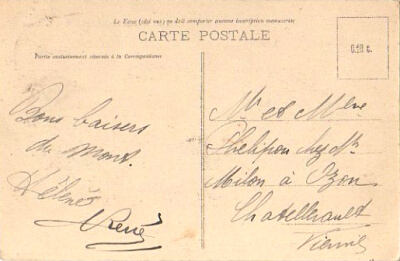 Le Recto (côté vue) ne doit comporter aucune inscription manuscrite
CARTE POSTALE
Partie exclusivement réservée à la Correspondance
0.20 c.
Bons baisers
du Mont.
Hélène
René
Mr et Mme
Phelipon chez Mr
Milon à Ozon
Chatellerault
Vienne